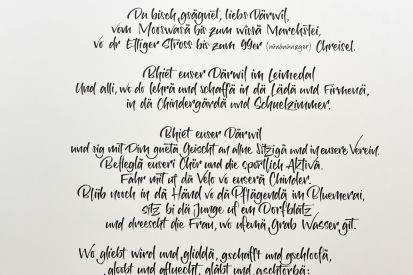 Du bisch gsägnet, liebs Därwil,
vom Mooswasä bis zum wissä Marchstei,
vo dr Ettiger Stross bis zum 99er (nünänünzger) Chreisel.
Bhiet euser Därwil im Leimedal
Und alli, wo do lehrä und schaffä in dä Lädä und Firmenä,
in dä Chindergärdä und Schuelzimmer.
Bhiet euser Därwil
und sig mit Dim guetä Geischt an allne Sitzigä und in eusere Verein.
Befleglä euseri Chör und die sportlich Aktivä.
Fahr mit uf dä Velo vo euserä Chinder.
Bliib nooch in dä Händ vo dä Pflägendä im Bluemerai,
sitz bi dä Junge uf em Dorfblätz
und dreescht die Frau, wo ufemä Grab Wasser git.
Wo gliebt wird und gliddä, gschafft und gschloofä,
globt und gfluecht, gläbt und gschtorbä: